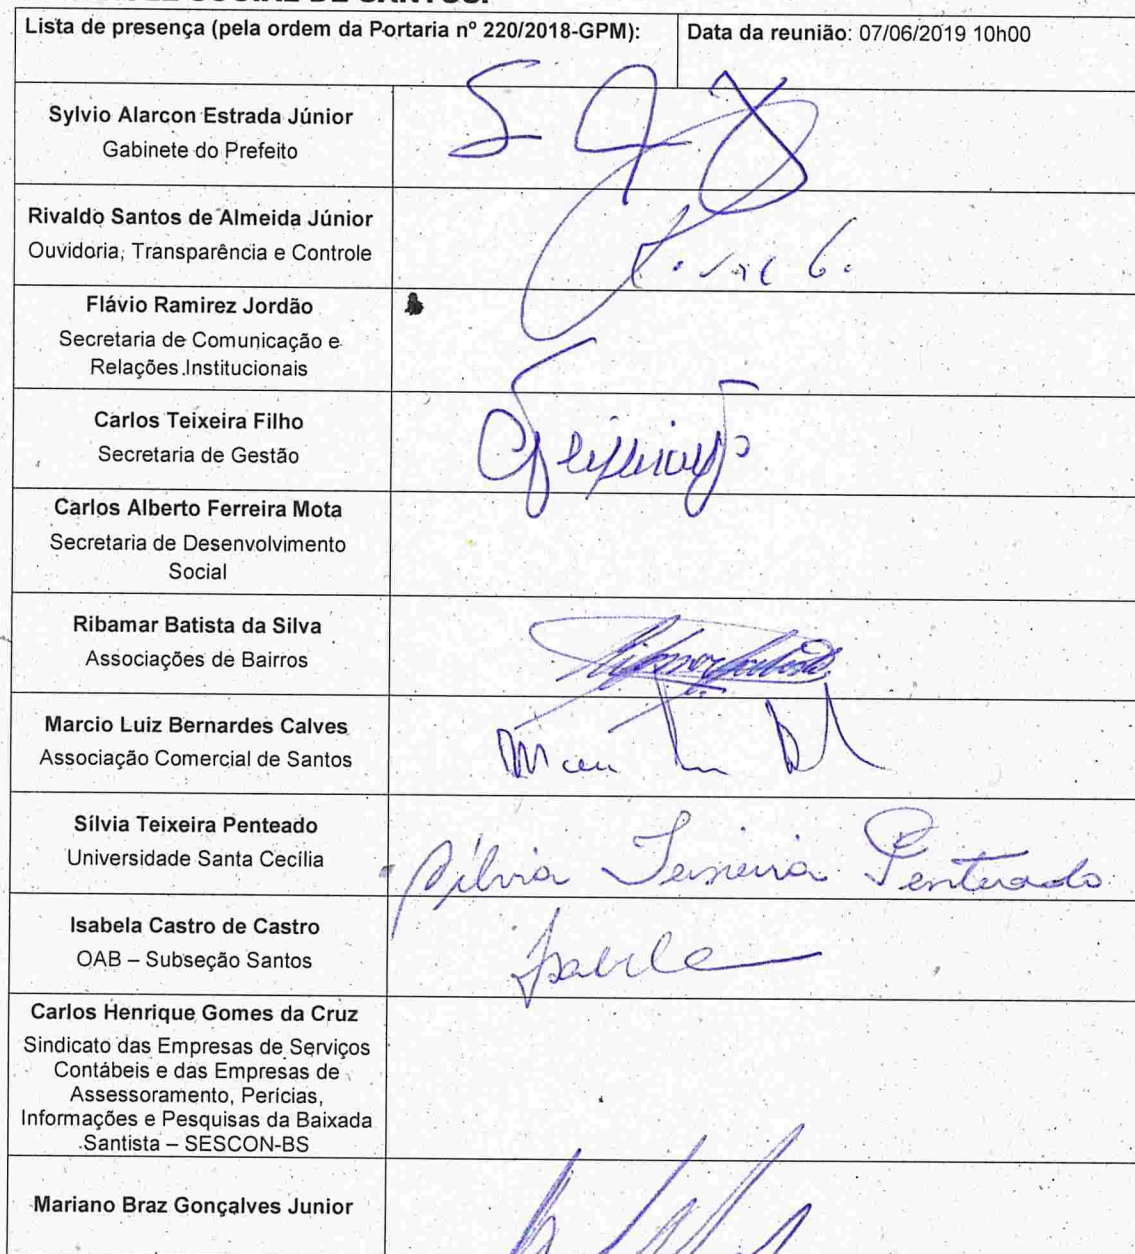 Lista de presença (pela ordem da Portaria nº 220/2018-GPM):
Data da reunião: 07/06/2019 10h00
Sylvio Alarcon Estrada Júnior
Gabinete do Prefeito
Rivaldo Santos de Almeida Júnior
Ouvidoria, Transparência e Controle
Flávio Ramirez Jordão
Secretaria de Comunicação e
Relações Institucionais
Carlos Teixeira Filho
Secretaria de Gestão
Carlos Alberto Ferreira Mota
Secretaria de Desenvolvimento
Social
Ribamar Batista da Silva
Associações de Bairros
Marcio Luiz Bernardes Calves
Associação Comercial de Santos
Sílvia Teixeira Penteado
Universidade Santa Cecília
Sílvia Teixeira Penteado
Isabela Castro de Castro
OAB – Subseção Santos
Carlos Henrique Gomes da Cruz
Sindicato das Empresas de Serviços
Contábeis e das Empresas de
Assessoramento, Perícias,
Informações e Pesquisas da Baixada
Santista – SESCON-BS
Mariano Braz Gonçalves Junior